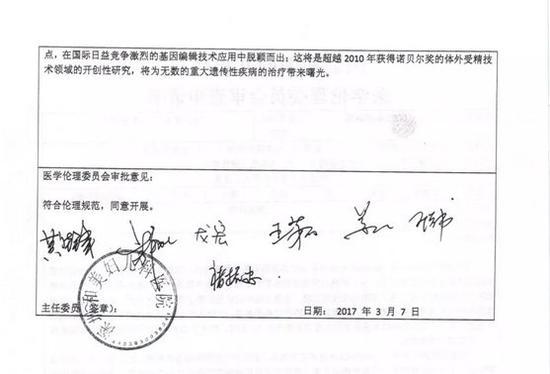 点，在国际日益竞争激烈的基因编辑技术应用中脱颖而出；这将是超越 2010 年获得诺贝尔奖的体外受精技
术领域的开创性研究，将为无数的重大遗传性疾病的治疗带来曙光。
医学伦理委员会审批意见：
符合伦理规范，同意开展。
深圳和美妇儿科医院
主任委员（签章）：
日期：2017 年 3 月 7 日